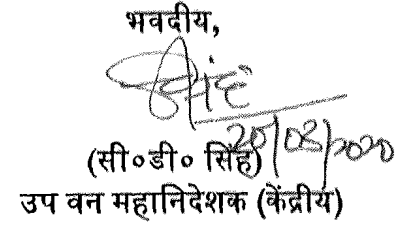 भवदीय,
सिंह
20/08/2020
(सी०डी० सिंह)
उप वन महानिदेशक (केंद्रीय)